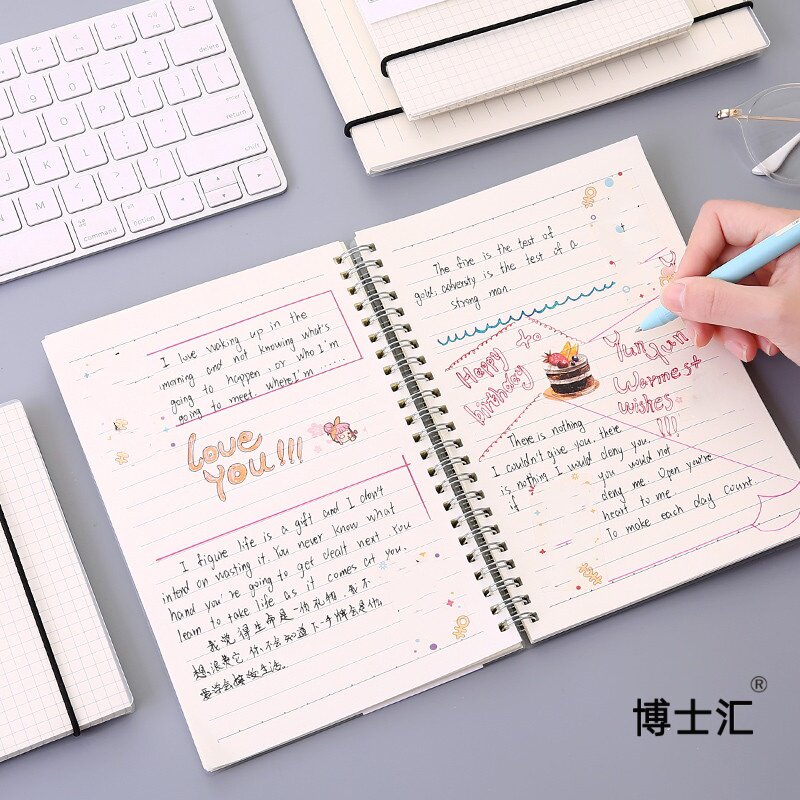 I love waking up in the
morning and not knowing what's
going to happen, or who I'm
going to meet. where I'm......
Love
You!!!
I figure life is a gift and I don't
intend on wasting it. You never know what
hand you're going to get dealt next. You
learn to take life as it comes at you.
我觉得生命是一份礼物，我不
想浪费它，你不会知道下一手牌会是什么
要学会接受生活。
The fire is the test of
gold, adversity is the test of a
strong man.
Happy to
birthday
YunYun
Warmest
wishes
!!!
There is nothing
I couldn't give you, there
is nothing I would deny you,
if you would not
deny me. Open you're
heart to me.
To make each day count.
delete
return
shift
command
option
博士汇®